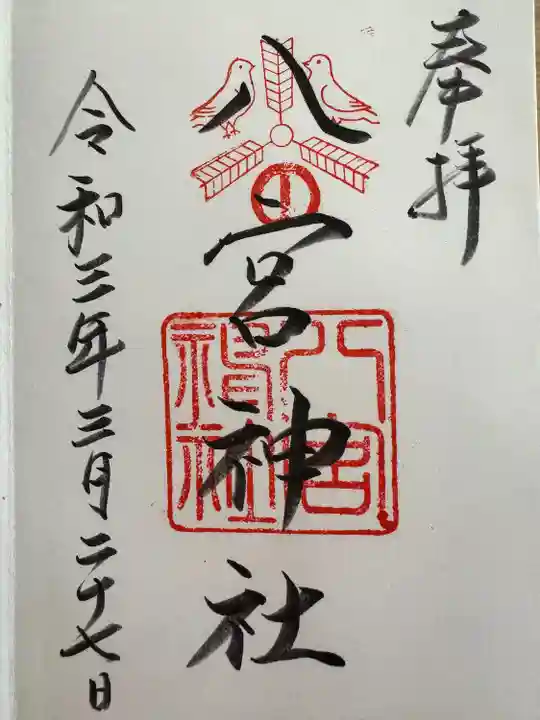 奉拝
八宮神社
八宮
神社
令和三年三月二十七日